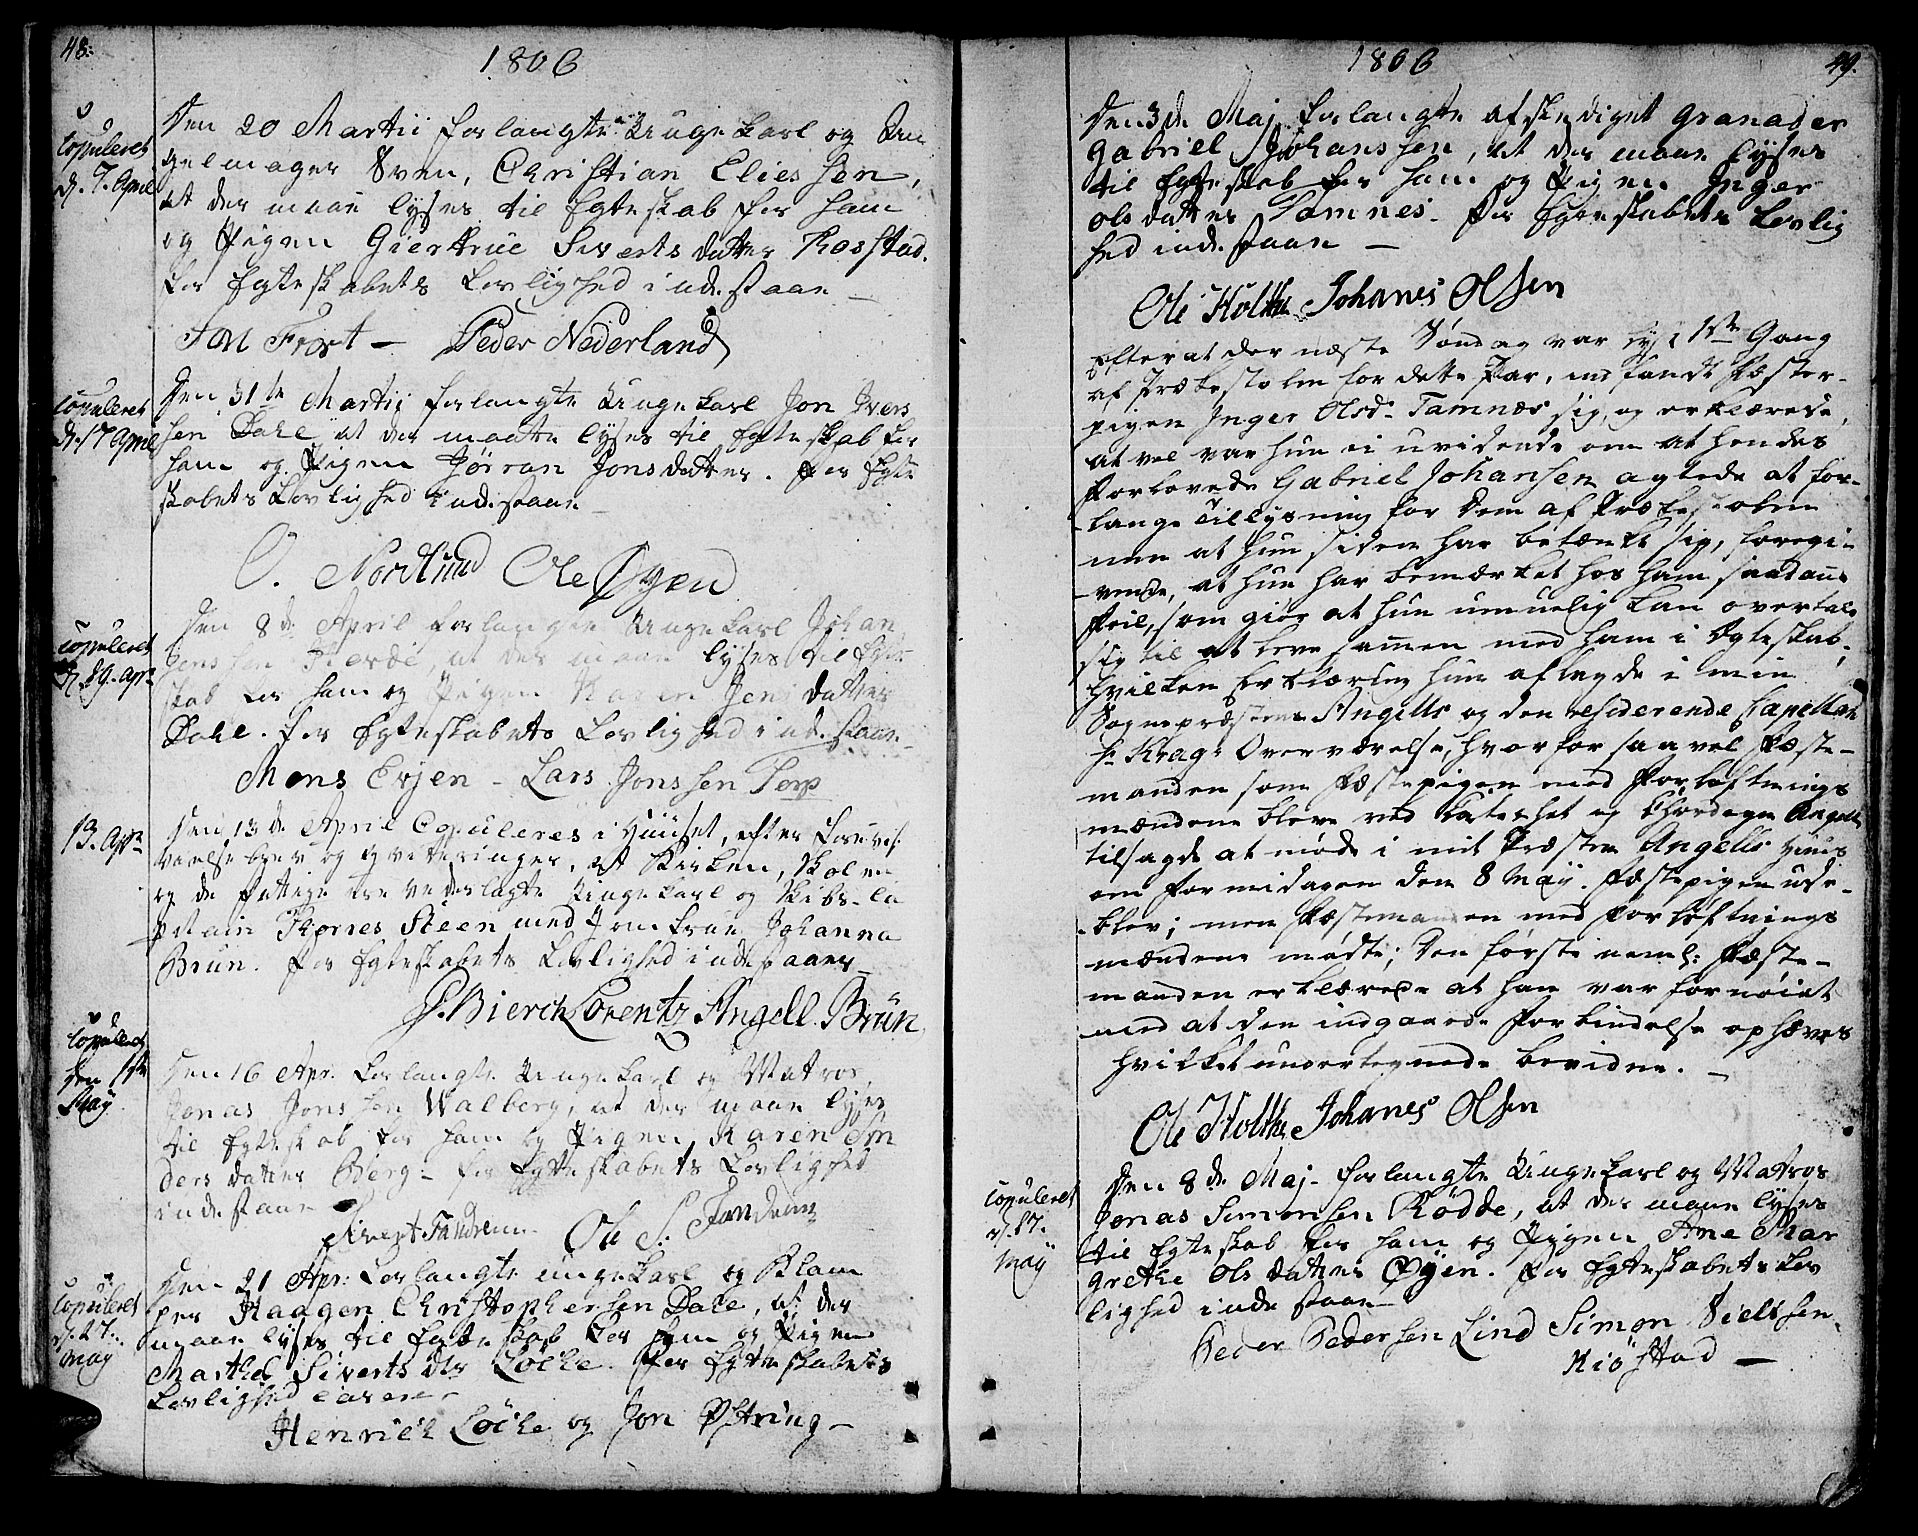 48.
1806
Copuleret
d. 7. April
Den 20 Martii forlangte Unge Karl og
gelmager Sven, Christian Eliessen,
at der maae lyses til Egteskab for ham
og Pigen Giertrue Siverts datter Rosstad.
For Egteskabets Lovlighed indestaae
Frost – Peder Nederland
Copuleret
d. 17 April
Den 31te Martij forlangte Unge Karl Jon Ivers
sen Dahl at der maatte lyses til Egteskab for
ham og Pigen Jørran Jonsdatter. For Egte
skabets Lovlighed indestaae
O. Nordlund Ole Øyen
Copuleret
d. 29. Apr.
Den 8de April forlangte Unge Karl Johan
Jenssen at der maae lyses til Egte
skab for ham og Pigen Karen Jens datter
Dahl. For Egteskabets Lovlighed indestaae
Mons Evjen – Lars Jonssen Torp
13. Apr.
Den 13de April Copuleres i Huuset, efter
og qvitteringer, at Kirken, Skolen
og de Fattige ere vederlagte Ungekarl og Skibs-Ca
pitain Steen med Jomfrue Johanna
Brün. For Egteskabets Lovlighed indestaaer
Bierch Lorentz Angell. Brün
Copuleret
den 1ste
May
Den 16 Apr. forlangte Ungekarl og Matros
Jonas Jonssen Walberg, at der maae lyses
til Egteskab for ham og Pigen Karen An
ders datter Berg – For Egteskabets Lovlighed
indestaae
Sivert Tandrem Ole S. Tandrem
Copuleret
d. 27.
May
Den 21 Apr. forlangte ungekarl og Klam
per Haagen Christophersen Dahl, at der
maae lyses til Egteskab for ham og Pigen
Marthe Siverts dtr Löche. For Egteskabets
Lovlighed caverer
Henrich Löche og Jon Østring –
49.
1806
Den 3de Maj forlangte afskediget Granader
Gabriel Johanssen, at der maae lyses
til Egteskab for ham og Pigen Inger
Ols datter Tamnes. For Egteskabets Lovlig
hed indestaae –
Ole Holthe Johanes Olsen
Efterat der næste Søndag var lyst 1ste Gang
af Prækestolen for dette Par, indfandt Fæster-
pigen Inger Olsd. Tamnæs sig, og erklærede,
at vel var hun ei uvidende om at hendes
Forlovede Gabriel Johansen agtede at for-
lange Tillysning for Dem af Prækestolen
men at hun siden har betænkt sig, foregi-
vende, at hun har bemærket hos ham saadanne
Feil, som giør at hun umuelig kan overtale
sig til at leve sammen med ham i Egteskab,
hvilken Erklæring hun aflagde i min
Sognepræstens Angells og den residerende Capellan
Hr Krags Overværelse, hvorfor saavel Fæste-
manden som Fæstepigen med Forløftnings
mændene bleve ved Catechet og Chordegn Angell
tilsagde at møde i mit Præsten Angells Huus
om Formidagen den 8 Maij. Fæstepigen ude-
blev; men Fæstemanden med Forløftnings
mændene mødte; Den første neml: Fæste-
manden erklærede at han var fornøiet
med at den indgaaede Forbindelse ophæves
hvilket undertegnede bevidne. –
Ole Holthe Johanes Olsen
Copuleret
d. 17.
May
Den 8de Maj forlangte Ungekarl og Matros
Jonas Simonsen Rödde, at der maae lyses
til Egteskab for ham og Pigen Ane Mar
grethe Ols datter Øyen. For Egteskabets Lov
lighed indestaae
Peder Pedersen Lind Simon Nielssen
Kiøstad –